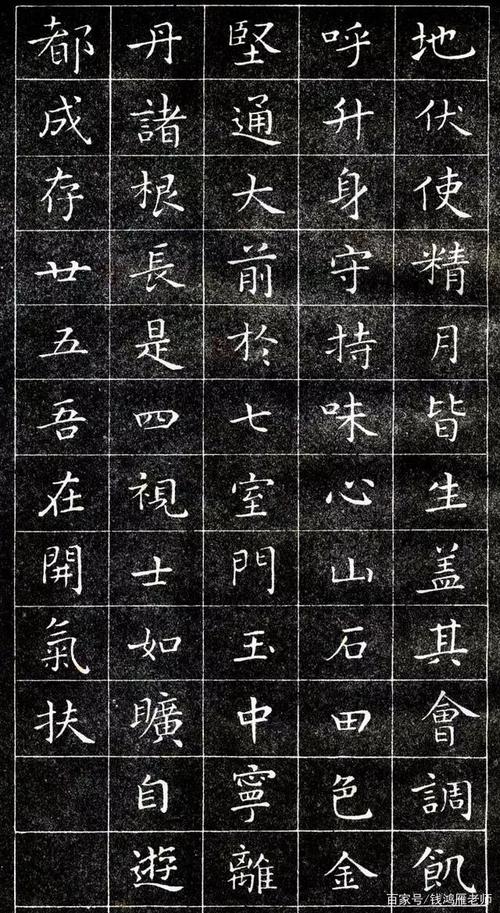 地伏使精月皆生盖其會調飢
呼升身守持味心山石田色金
堅通大前於七室門玉中寧離
丹諸根長是四視士如曠自遊
都成存廿五吾在開氣扶
百家号/钱鸿雁老师